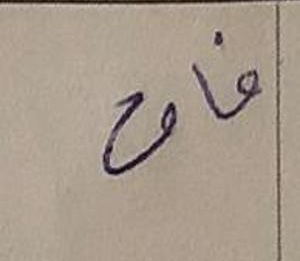 فاح